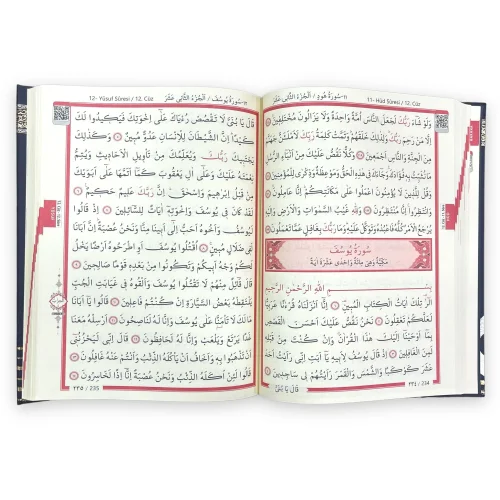 ١١-سُورَةُ هُودٍ / اَلْجُزْءُ الثَّانِي عَشَرَ 11- Hûd Sûresi / 12. Cüz
وَلَوْ شَاءَ رَبُّكَ لَجَعَلَ النَّاسَ اُمَّةً وَاحِدَةً وَلَا يَزَالُونَ مُخْتَلِفِينَ
اِلَّا مَنْ رَحِمَ رَبُّكَ وَلِذٰلِكَ خَلَقَهُمْ وَتَمَّتْ كَلِمَةُ رَبِّكَ لَاَمْلَـَٔنَّ جَهَنَّمَ
مِنَ الْجِنَّةِ وَالنَّاسِ اَجْمَعِينَ وَكُلًّا نَقُصُّ عَلَيْكَ مِنْ اَنْبَاءِ الرُّسُلِ
مَا نُثَبِّتُ بِهِ فُؤَادَكَ وَجَاءَكَ فِي هٰذِهِ الْحَقُّ وَمَوْعِظَةٌ وَذِكْرٰى لِلْمُؤْمِنِينَ
وَقُلْ لِلَّذِينَ لَا يُؤْمِنُونَ اعْمَلُوا عَلٰى مَكَانَتِكُمْ اِنَّا عَامِلُونَ
وَانْتَظِرُوا اِنَّا مُنْتَظِرُونَ وَلِلّٰهِ غَيْبُ السَّمٰوَاتِ وَالْاَرْضِ وَاِلَيْهِ
يُرْجَعُ الْاَمْرُ كُلُّهُ فَاعْبُدْهُ وَتَوَكَّلْ عَلَيْهِ وَمَا رَبُّكَ بِغَافِلٍ عَمَّا تَعْمَلُونَ
سُورَةُ يُوسُفَ
مَكِّيَّةٌ وَهِيَ مِائَةٌ وَاِحْدٰى عَشْرَةَ اٰيَةً
بِسْمِ اللّٰهِ الرَّحْمٰنِ الرَّحِيمِ
الٓرٰ تِلْكَ اٰيَاتُ الْكِتَابِ الْمُبِينِ اِنَّا اَنْزَلْنَاهُ قُرْاٰنًا عَرَبِيًّا
لَعَلَّكُمْ تَعْقِلُونَ نَحْنُ نَقُصُّ عَلَيْكَ اَحْسَنَ الْقَصَصِ
بِمَا اَوْحَيْنَا اِلَيْكَ هٰذَا الْقُرْاٰنَ وَاِنْ كُنْتَ مِنْ قَبْلِهِ
لَمِنَ الْغَافِلِينَ اِذْ قَالَ يُوسُفُ لِاَبِيهِ يَا اَبَتِ اِنِّي رَاَيْتُ اَحَدَ
عَشَرَ كَوْكَبًا وَالشَّمْسَ وَالْقَمَرَ رَاَيْتُهُمْ لِي سَاجِدِينَ
قَالَ يَا بُنَيَّ
٢٣٤ / 234
١٢-سُورَةُ يُوسُفَ / اَلْجُزْءُ الثَّانِي عَشَرَ 12- Yûsuf Sûresi / 12. Cüz
قَالَ يَا بُنَيَّ لَا تَقْصُصْ رُءْيَاكَ عَلٰى اِخْوَتِكَ فَيَكِيدُوا لَكَ
كَيْدًا اِنَّ الشَّيْطَانَ لِلْاِنْسَانِ عَدُوٌّ مُبِينٌ وَكَذٰلِكَ
يَجْتَبِيكَ رَبُّكَ وَيُعَلِّمُكَ مِنْ تَأْوِيلِ الْاَحَادِيثِ وَيُتِمُّ
نِعْمَتَهُ عَلَيْكَ وَعَلٰى اٰلِ يَعْقُوبَ كَمَا اَتَمَّهَا عَلٰى اَبَوَيْكَ
مِنْ قَبْلُ اِبْرٰهِيمَ وَاِسْحٰقَ اِنَّ رَبَّكَ عَلِيمٌ حَكِيمٌ
لَقَدْ كَانَ فِي يُوسُفَ وَاِخْوَتِهِ اٰيَاتٌ لِلسَّائِلِينَ اِذْ قَالُوا
لَيُوسُفُ وَاَخُوهُ اَحَبُّ اِلٰى اَبِينَا مِنَّا وَنَحْنُ عُصْبَةٌ اِنَّ اَبَانَا
لَفِي ضَلَالٍ مُبِينٍ اُقْتُلُوا يُوسُفَ اَوِ اطْرَحُوهُ اَرْضًا يَخْلُ
لَكُمْ وَجْهُ اَبِيكُمْ وَتَكُونُوا مِنْ بَعْدِهِ قَوْمًا صَالِحِينَ
قَالَ قَائِلٌ مِنْهُمْ لَا تَقْتُلُوا يُوسُفَ وَاَلْقُوهُ فِي غَيَابَتِ الْجُبِّ
يَلْتَقِطْهُ بَعْضُ السَّيَّارَةِ اِنْ كُنْتُمْ فَاعِلِينَ قَالُوا يَا اَبَانَا
مَا لَكَ لَا تَأْمَنَّا عَلٰى يُوسُفَ وَاِنَّا لَهُ لَنَاصِحُونَ اَرْسِلْهُ مَعَنَا
غَدًا يَرْتَعْ وَيَلْعَبْ وَاِنَّا لَهُ لَحَافِظُونَ قَالَ اِنِّي لَيَحْزُنُنِي
اَنْ تَذْهَبُوا بِهِ وَاَخَافُ اَنْ يَأْكُلَهُ الذِّئْبُ وَاَنْتُمْ عَنْهُ غَافِلُونَ
قَالُوا لَئِنْ اَكَلَهُ الذِّئْبُ وَنَحْنُ عُصْبَةٌ اِنَّا اِذًا لَخَاسِرُونَ
٢٣٥ / 235